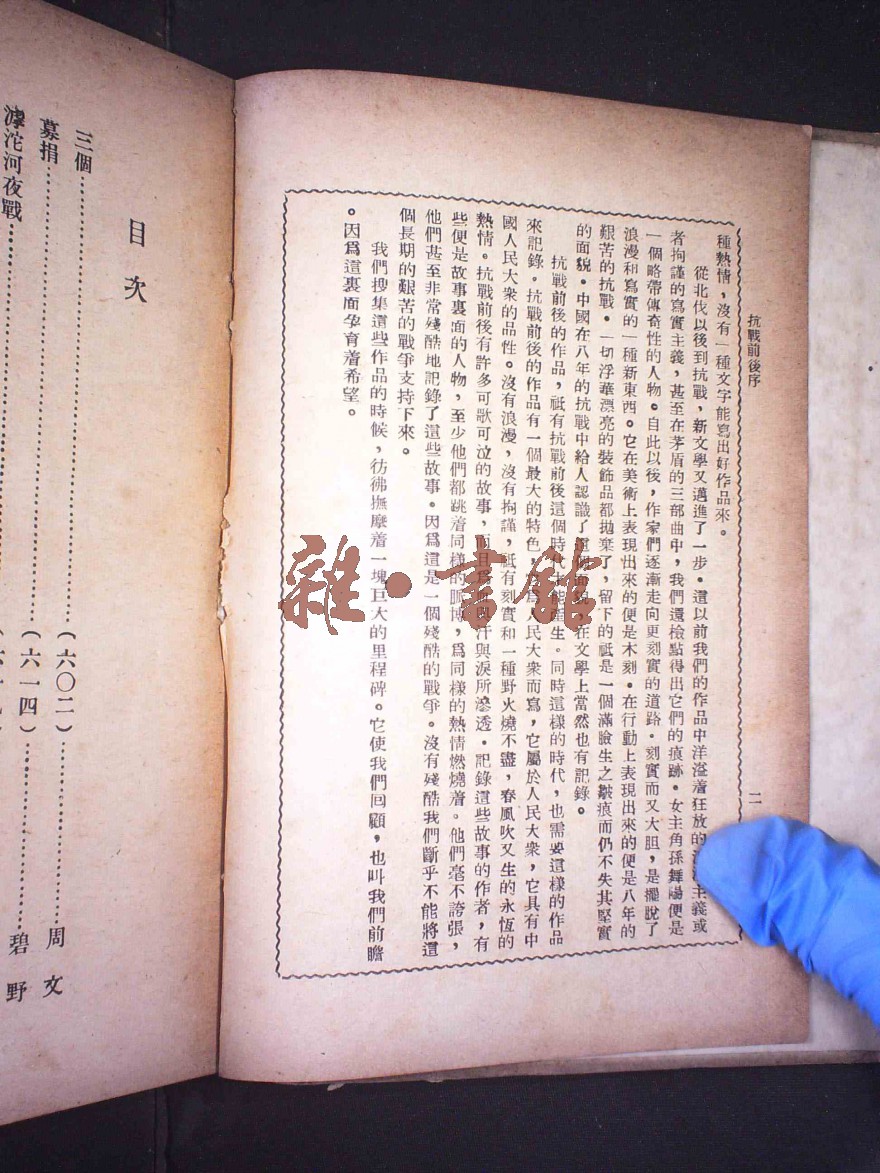 抗戰前後序
二
種熱情，沒有一種文字能寫出好作品來。
從北伐以後到抗戰，新文學又邁進了一步。這以前我們的作品中洋溢着狂放的主義或
者拘謹的寫實主義，甚至在茅盾的三部曲中，我們還檢點得出它們的痕跡。女主角孫舞陽便是
一個略帶傳奇性的人物。自此以後，作家們逐漸走向更刻實的道路。刻實而又大胆，是擺脫了
浪漫和寫實的一種新東西。它在美術上表現出來的便是木刻。在行動上表現出來的便是八年的
艱苦的抗戰。一切浮華漂亮的裝飾品都拋棄了，留下的祗是一個滿臉生之皺痕而仍不失其堅實
的面貌。中國在八年的抗戰中給人認識了這個面貌，在文學上當然也有記錄。
抗戰前後的作品，祗有抗戰前後這個時代才能產生。同時這樣的時代，也需要這樣的作品
來記錄。抗戰前後的作品有一個最大的特色，爲人民大衆而寫，它屬於人民大衆，它具有中
國人民大衆的品性。沒有浪漫，沒有拘謹，祗有刻實和一種野火燒不盡，春風吹又生的永恆的
熱情。抗戰前後有許多可歌可泣的故事，而且爲血與汗與淚所滲透。記錄這些故事的作者，有
些便是故事裏面的人物，至少他們都跳着同樣的脈博，爲同樣的熱情燃燒着。他們毫不誇張，
他們甚至非常殘酷地記錄了這些故事。因爲這是一個殘酷的戰爭。沒有殘酷我們斷乎不能將這
個長期的艱苦的戰爭支持下來。
我們搜集這些作品的時候，彷彿撫摩着一塊巨大的里程碑。它使我們回顧，也叫我們前瞻
。因爲這裏面孕育着希望。
目次
三個……（六〇二）……周文
募捐……（六一四）……碧野
滹沱河夜戰……
雜·書館